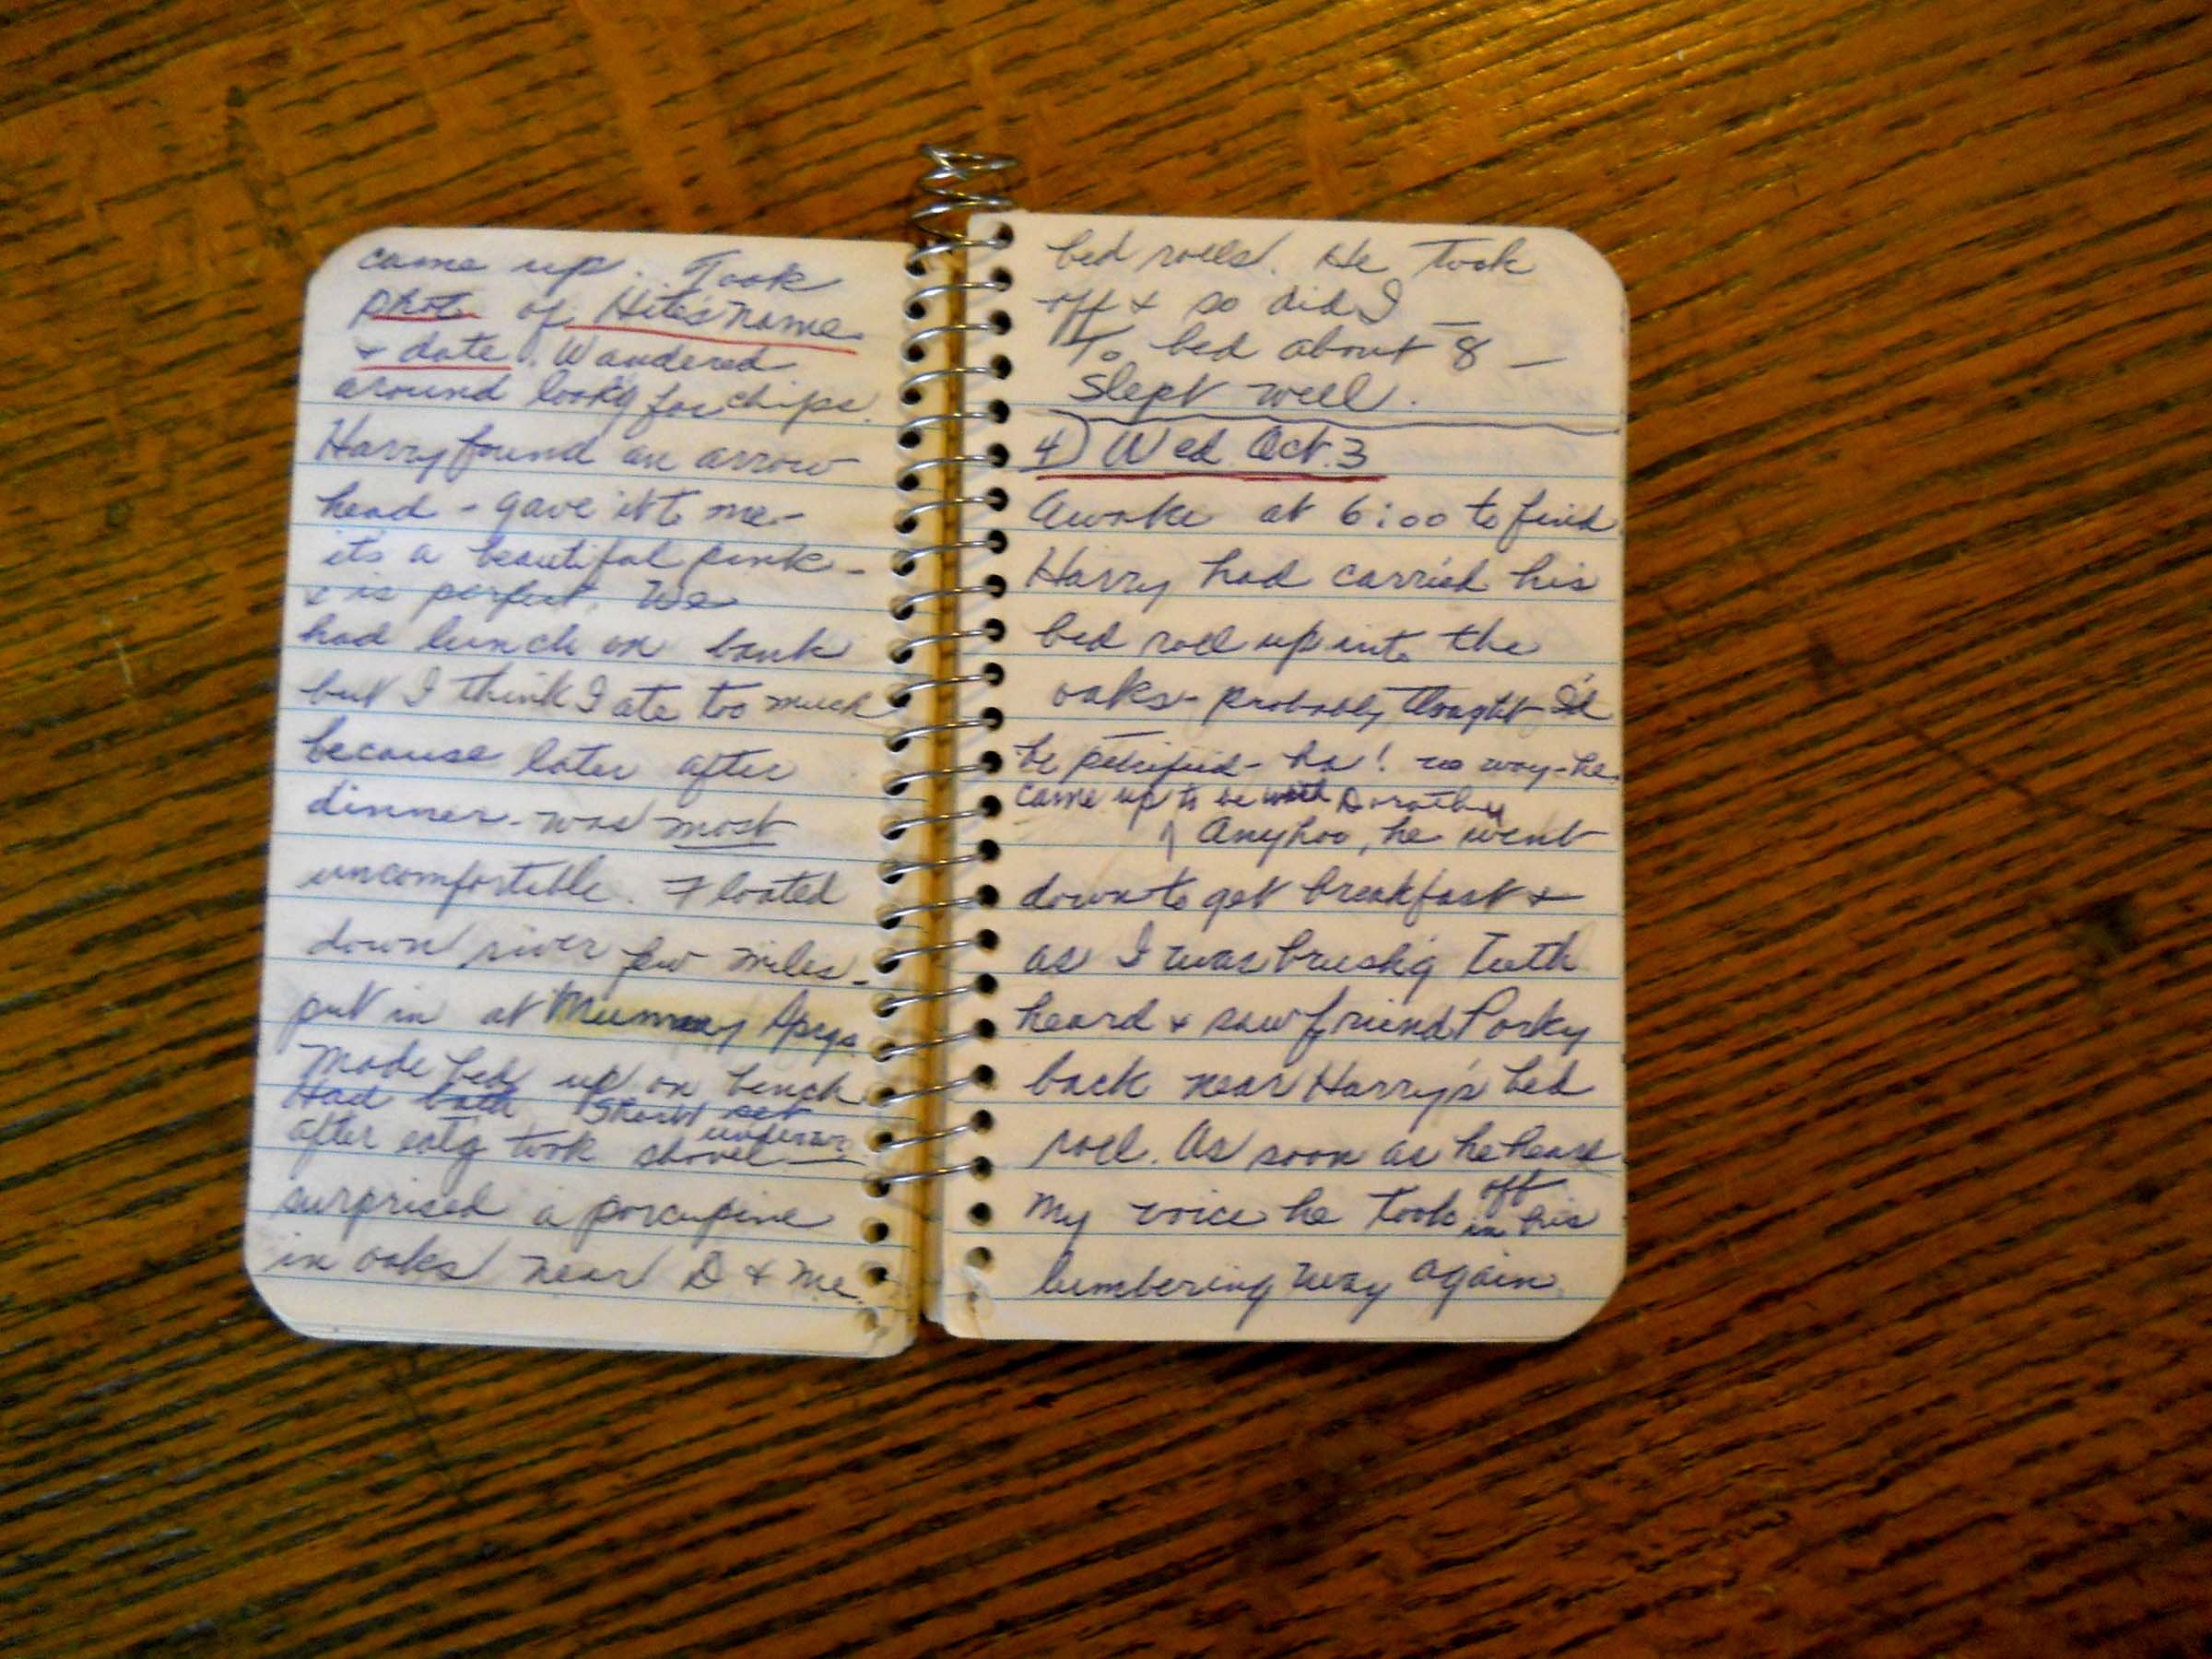 came up. Took
photo of Hite's name
& date. Wandered
around look'g for chips.
Harry found an arrow
head - gave it to me -
it's a beautiful pink -
& is perfect. We
had lunch on bank
but I think I ate too much
because later after
dinner - was most
uncomfortable. Floated
down river few miles -
put in at
Made bed up on bench
Had bath
after eatg took shovel —
surprised a porcupine
in oaks near D & me
bed rolls. He took
off & so did I —
To bed about 8 —
Slept well.
4) Wed. Oct. 3
Awoke at 6:00 to find
Harry had carried his
bed roll up into the
oaks - probably thought I'd
be petrified - ha! no way - he
came up to be with Dorothy
Anyhoo, he went
down to get breakfast &
as I was brush'g teeth
heard & saw friend Porky
back near Harry's bed
roll. As soon as he heard
my voice he took off in his
lumbering way again.